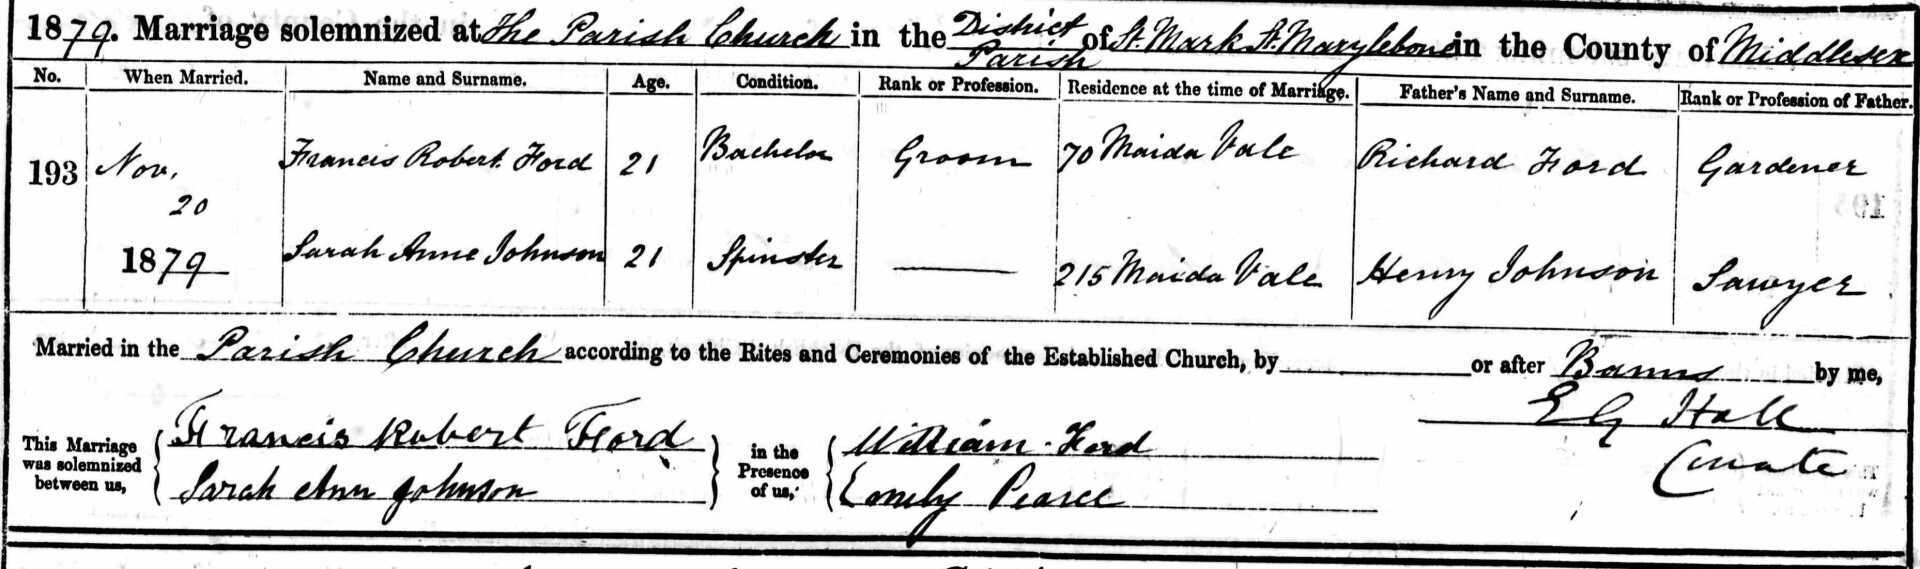 1879. Marriage solemnized at The Parish Church in the District Parish of St. Mark St. Marylebone in the County of Middlesex
No. When Married. Name and Surname. Age. Condition. Rank or Profession. Residence at the time of Marriage. Father's Name and Surname. Rank or Profession of Father.
193 Nov. 20 1879
Francis Robert Ford 21 Bachelor Groom 70 Maida Vale Richard Ford Gardener
Sarah Anne Johnson 21 Spinster 215 Maida Vale Henry Johnson Sawyer
Married in the Parish Church according to the Rites and Ceremonies of the Established Church, by or after Banns by me,
E G Hall
Curate
This Marriage was solemnized between us,
Francis Robert Ford
Sarah Ann Johnson
in the Presence of us,
William Ford
Emily Pearce